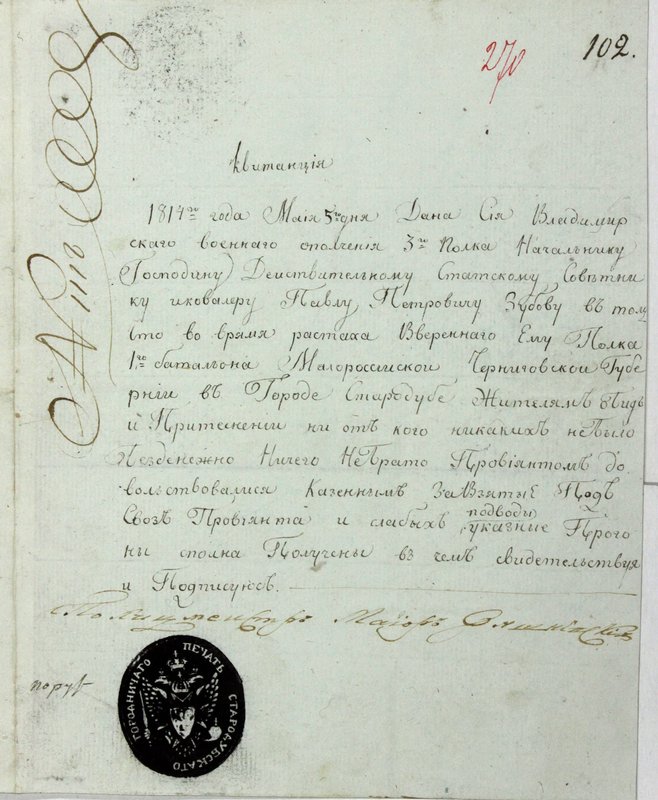 270
102.
Квитанція
1814го года Маія 5го дня Дана Сія Владимир
скаго военнаго ополченія 3го Полка Начальнику
(Господину) Действительному Статскому Совѣтни
ку иковалеру Павлу Петровичу Зубову въ том
что во время растаха Ввереннаго Ему Полка
1го баталіона Малороссійской Черниговской Губе
рніи въ Городе Стародубе Жителямъ обидъ
и Притененіи ни отъ кого никакихъ небыло
безденежно Ничего Небрато Провіянтомъ до
вольствовалися Казеннимъ За взятые Подъ
Свозъ Провіянта и слабыхъ подводы указние Прого
ни сполна Получены въ чемъ свидетельствуя
и Подписуюсь.
Полицместръ Маіоръ
ПЕЧАТЬ СТАРОДУБСКАГО ГОРОДНИЧАГО